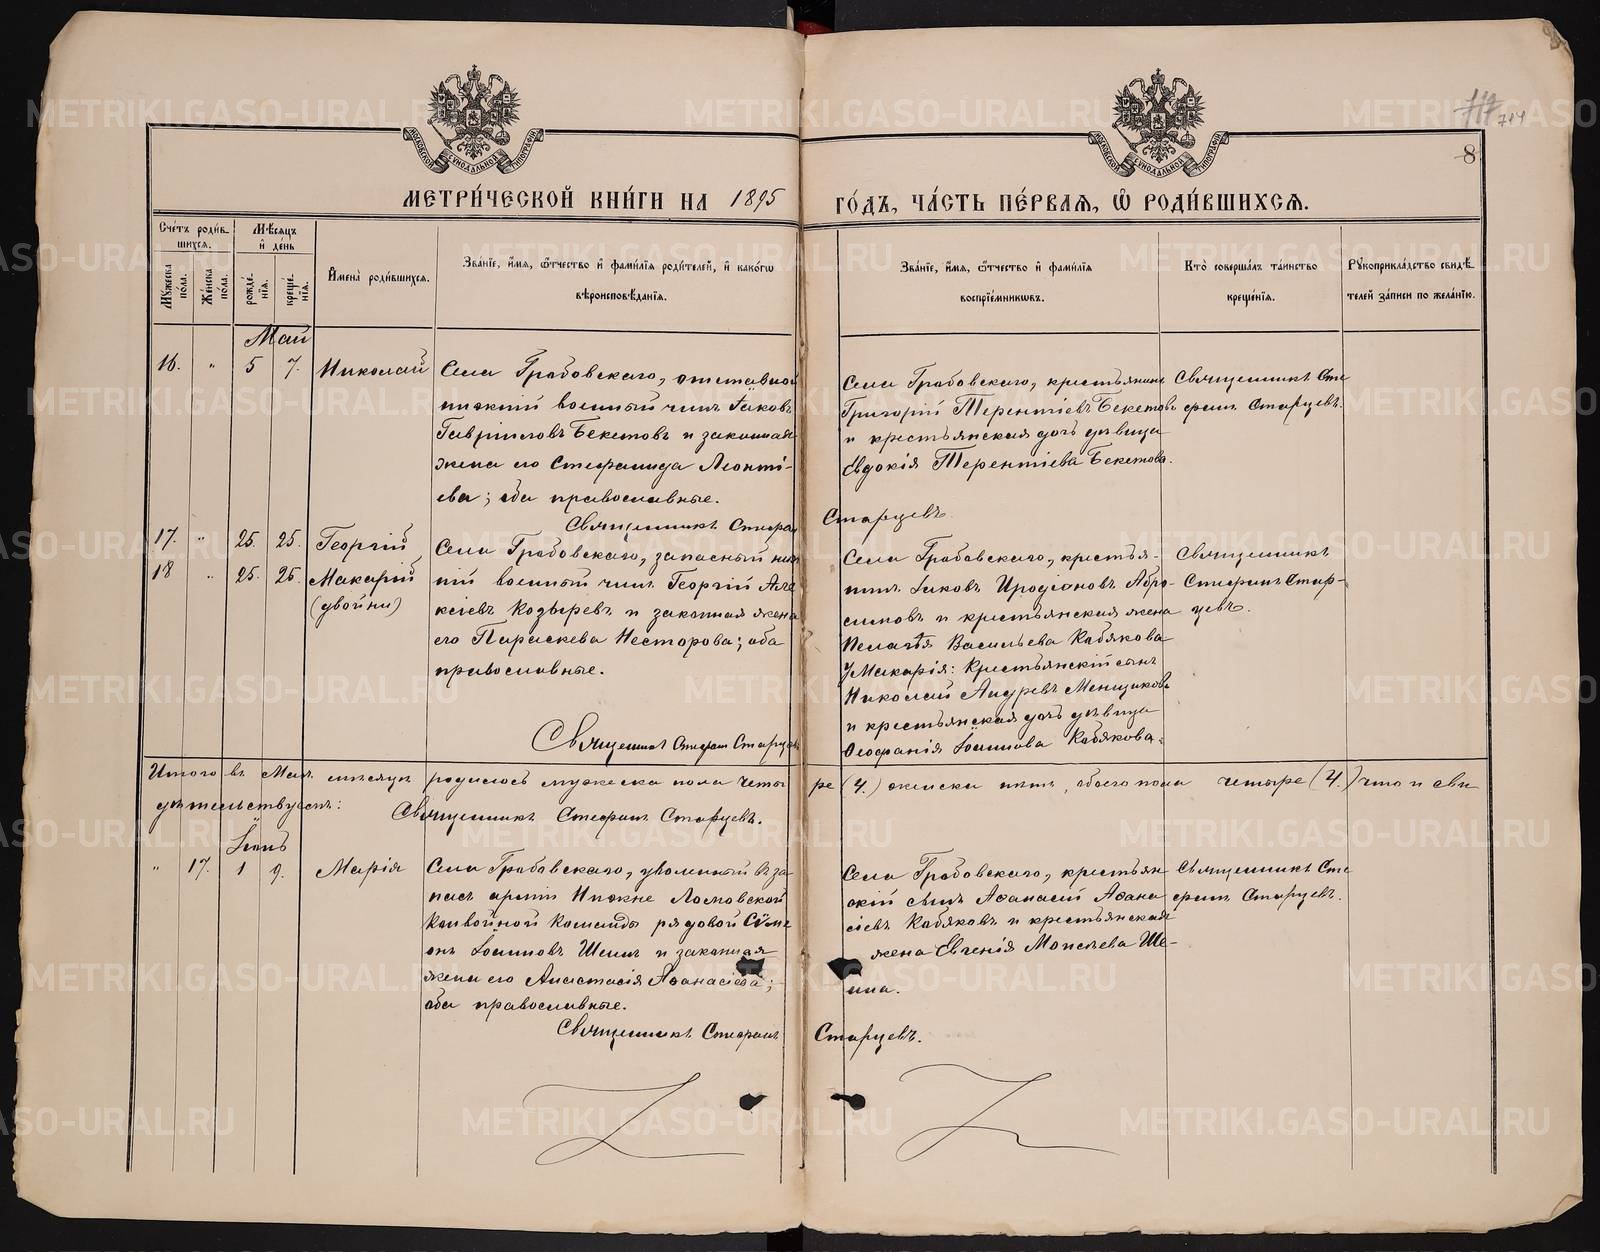 717 704
8
МОСКОВСКОЙ СѴНОДАЛЬНОЙ ТИПОГРАФІИ
МОСКОВСКОЙ СѴНОДАЛЬНОЙ ТИПОГРАФІИ
МЕТРИ́ЧЕСКОЙ КНИ́ГИ НА 1895 ГО́ДЪ, ЧА́СТЬ ПЕ́РВАЯ, Ѡ РОДИ́ВШИХСЯ.
Сче́тъ роди́в-
шихся.
Мꙋ́жеска пола. Же́нска пола.
Мѣ́сяцъ
и́ де́нь
рожде́нія. креще́нія.
И҆мена̀ роди́вшихся.
Зва́ніе, и҆́мя, ѻ҆́тчество и҆ фами́лія роди́телей, и҆ како́гѡ
вѣроисповѣ́данія.
Зва́ніе, и҆́мя, ѻ҆́тчество и҆ фами́лія
воспріе́мникѡвъ.
Кто̀ соверша́лъ та́инство
креще́нія.
Рꙋкоприкла́дство свидѣ́-
телей за́писи по жела́нію.
Май
16. " 5 7. Николай
Села Грабовскаго, отставной
нижній военный чинъ Іаковъ
Гавріиловъ Бекетовъ и законная
жена его Стефанида Леонті-
ева; оба православные.
Священникъ Стефанъ Старцевъ
Села Грабовскаго, крестьянинъ
Григорій Терентіевъ Бекетовъ
и крестьянская дочь дѣвица
Евдокія Терентіева Бекетова.
Священникъ Сте
фанъ Старцевъ.
17. " 25. 25. Георгій
18 " 25. 25. Макарій
(двойни)
Села Грабовскаго, запасный ниж
ній военный чинъ Георгій Але
ксіевъ Козыревъ и законная жена
его Параскева Несторова; оба
православные.
Священникъ Стефанъ Старцевъ
Села Грабовскаго, крестья-
нинъ Іаковъ Иродіоновъ Абро-
симовъ и крестьянская жена
Пелагія Васильева Кабякова
У Макарія: Крестьянскій сынъ
Николай Андревъ Менщиковъ
и крестьянская дочь дѣвица
Ѳеофанія Іоаннова Кабякова.
Священникъ
Стефанъ Стар-
цевъ.
Итого въ Маѣ мѣсяцѣ родилось мужеска пола четы ре (4.) женска нѣтъ, обоего пола четыре (4.) что и сви
дѣтельствуемъ:
Священникъ Стефанъ Старцевъ.
Іюнь
" 17. 1 9. Марія
Села Грабовскаго, уволенный въ за
пасъ арміи Нижне Ломовской
Конвойной Команды рядовой Сѵме
онъ Іоанновъ Шенинъ и законная
жена его Анастасія Аѳанасіева;
оба православные.
Священникъ Стефанъ Старцевъ.
Села Грабовскаго, крестьян
скій сынъ Аѳанасій Аѳана
сіевъ Кабяковъ и крестьянская
жена Евгенія Моисеева Ше-
нина.
Священникъ Сте
фанъ Старцевъ.